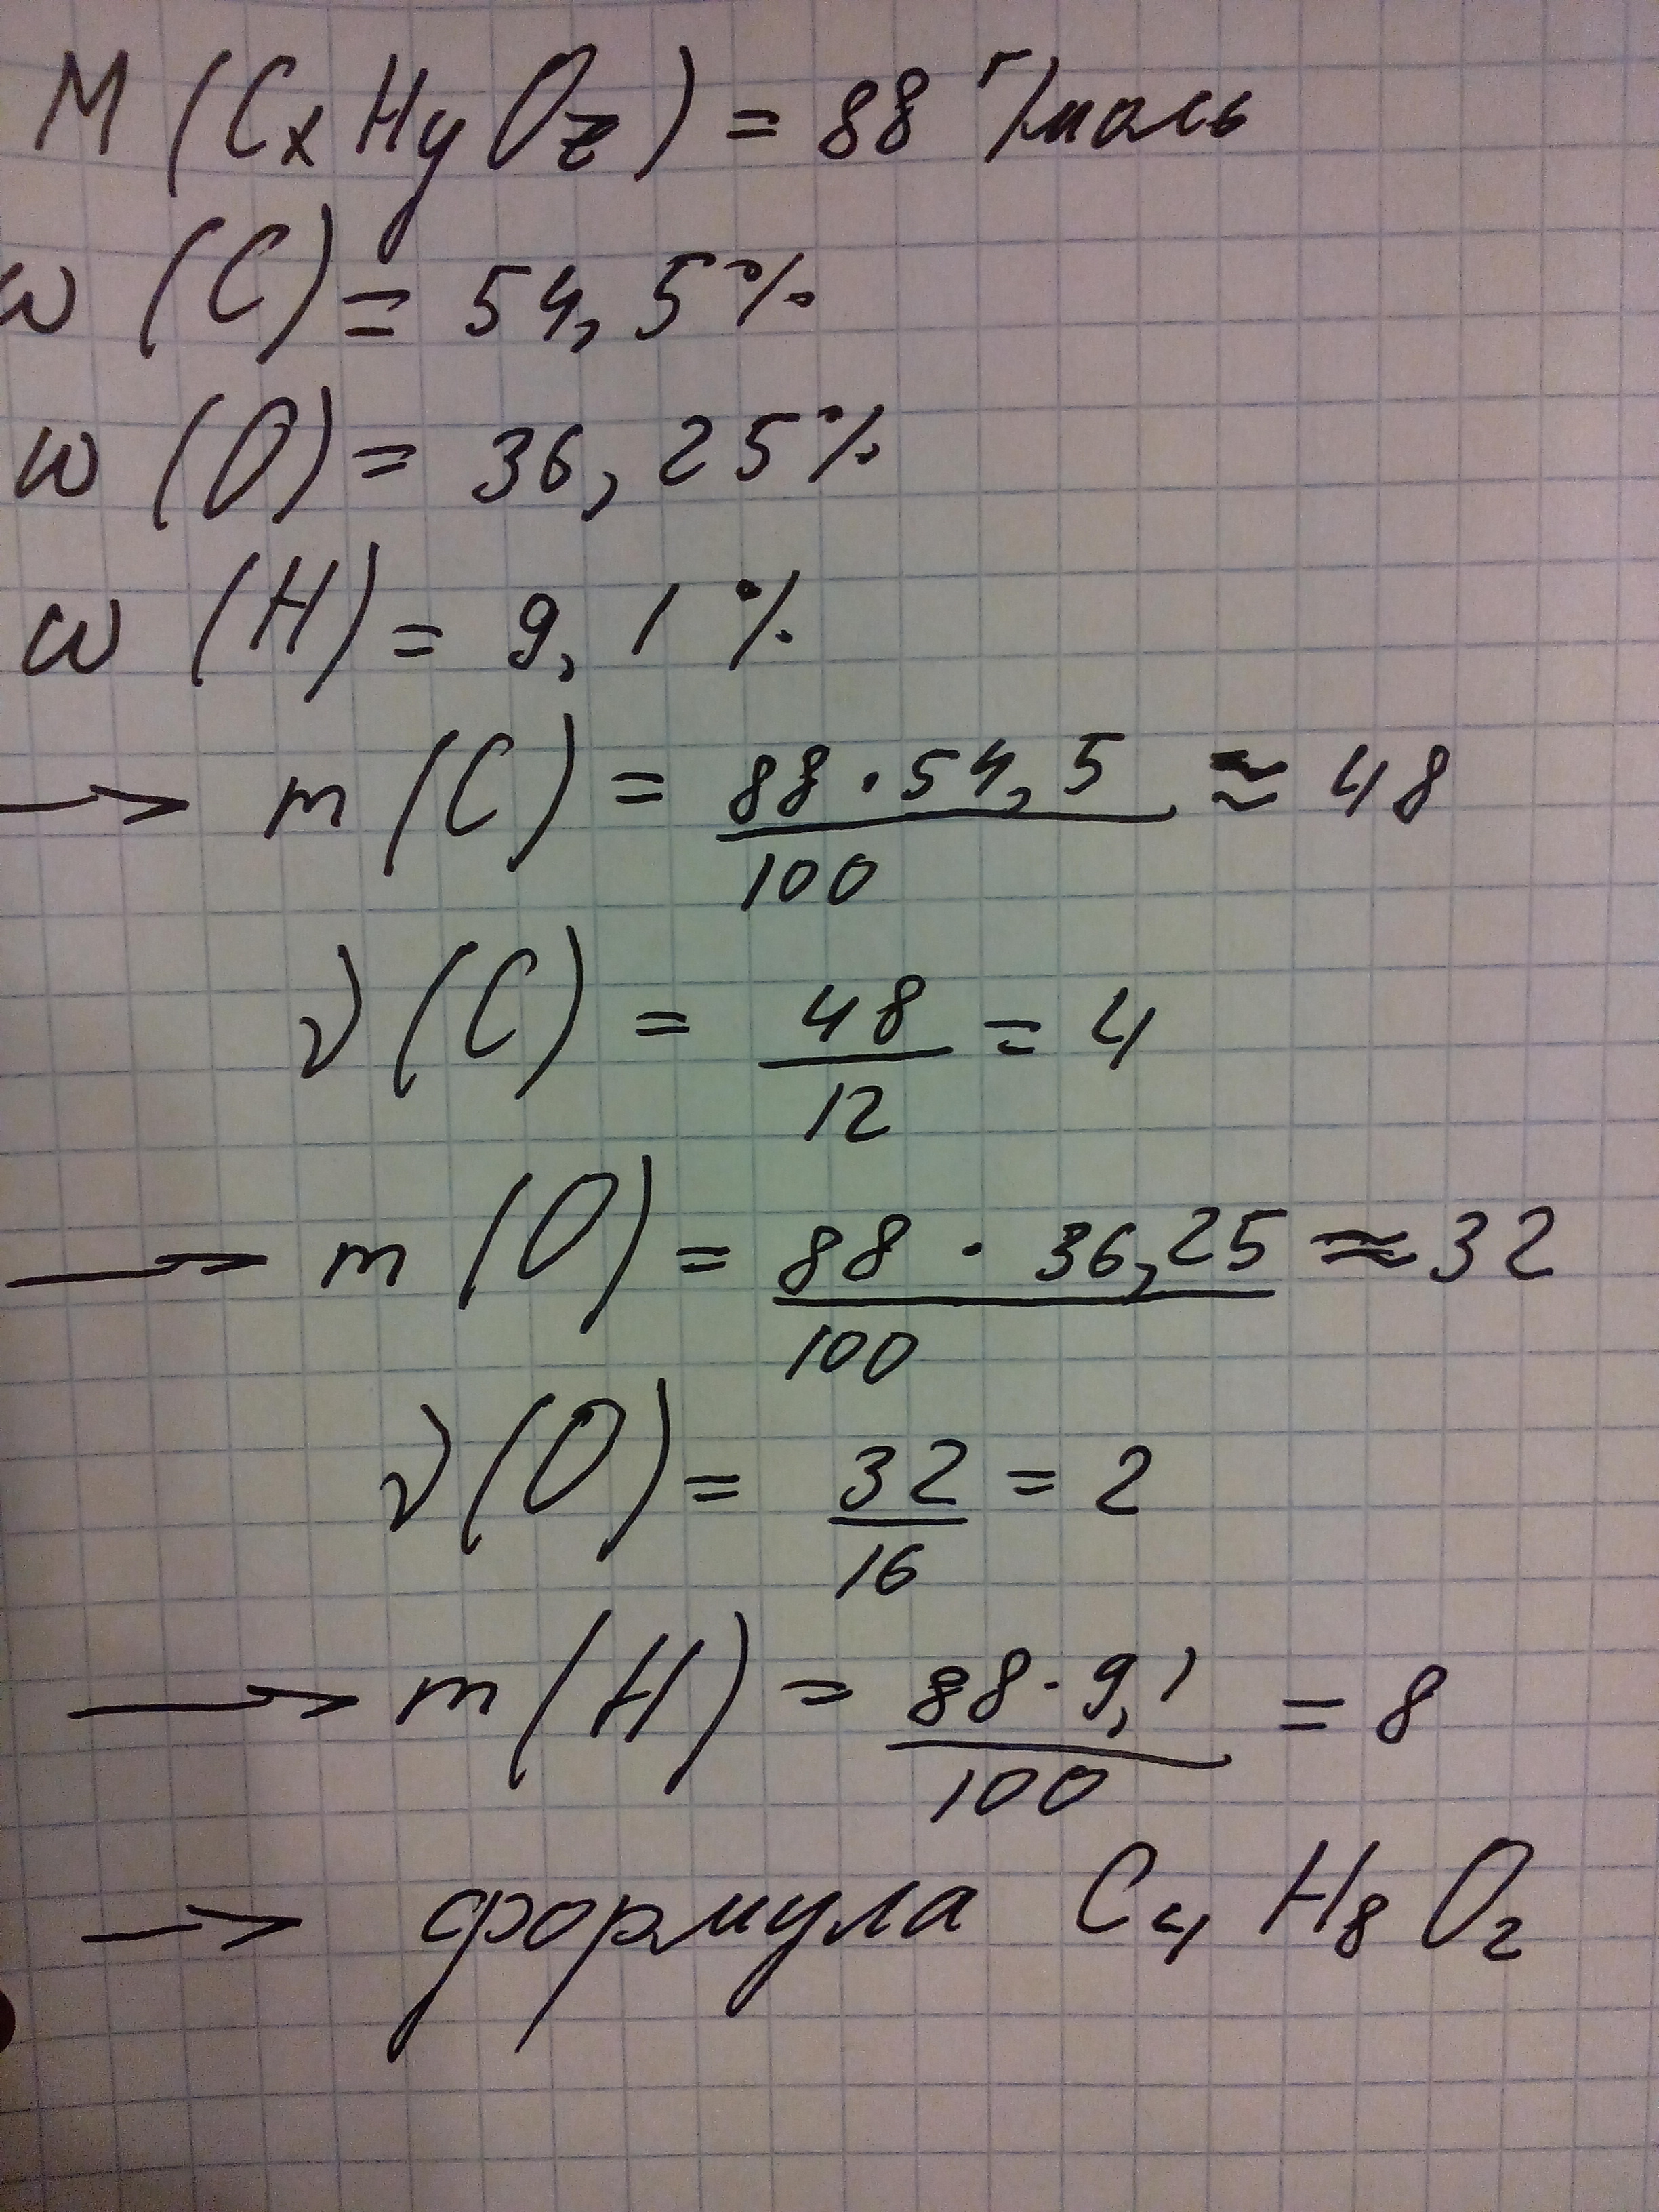 M (CxHyOz) = 88 г/моль
ω (C) = 54,5%
ω (O) = 36,25%
ω (H) = 9,1%
→ m (C) = 88 · 54,5 / 100 ≈ 48
ν (C) = 48 / 12 = 4
→ m (O) = 88 · 36,25 / 100 ≈ 32
ν (O) = 32 / 16 = 2
→ m (H) = 88 · 9,1 / 100 = 8
→ формула C4H8O2